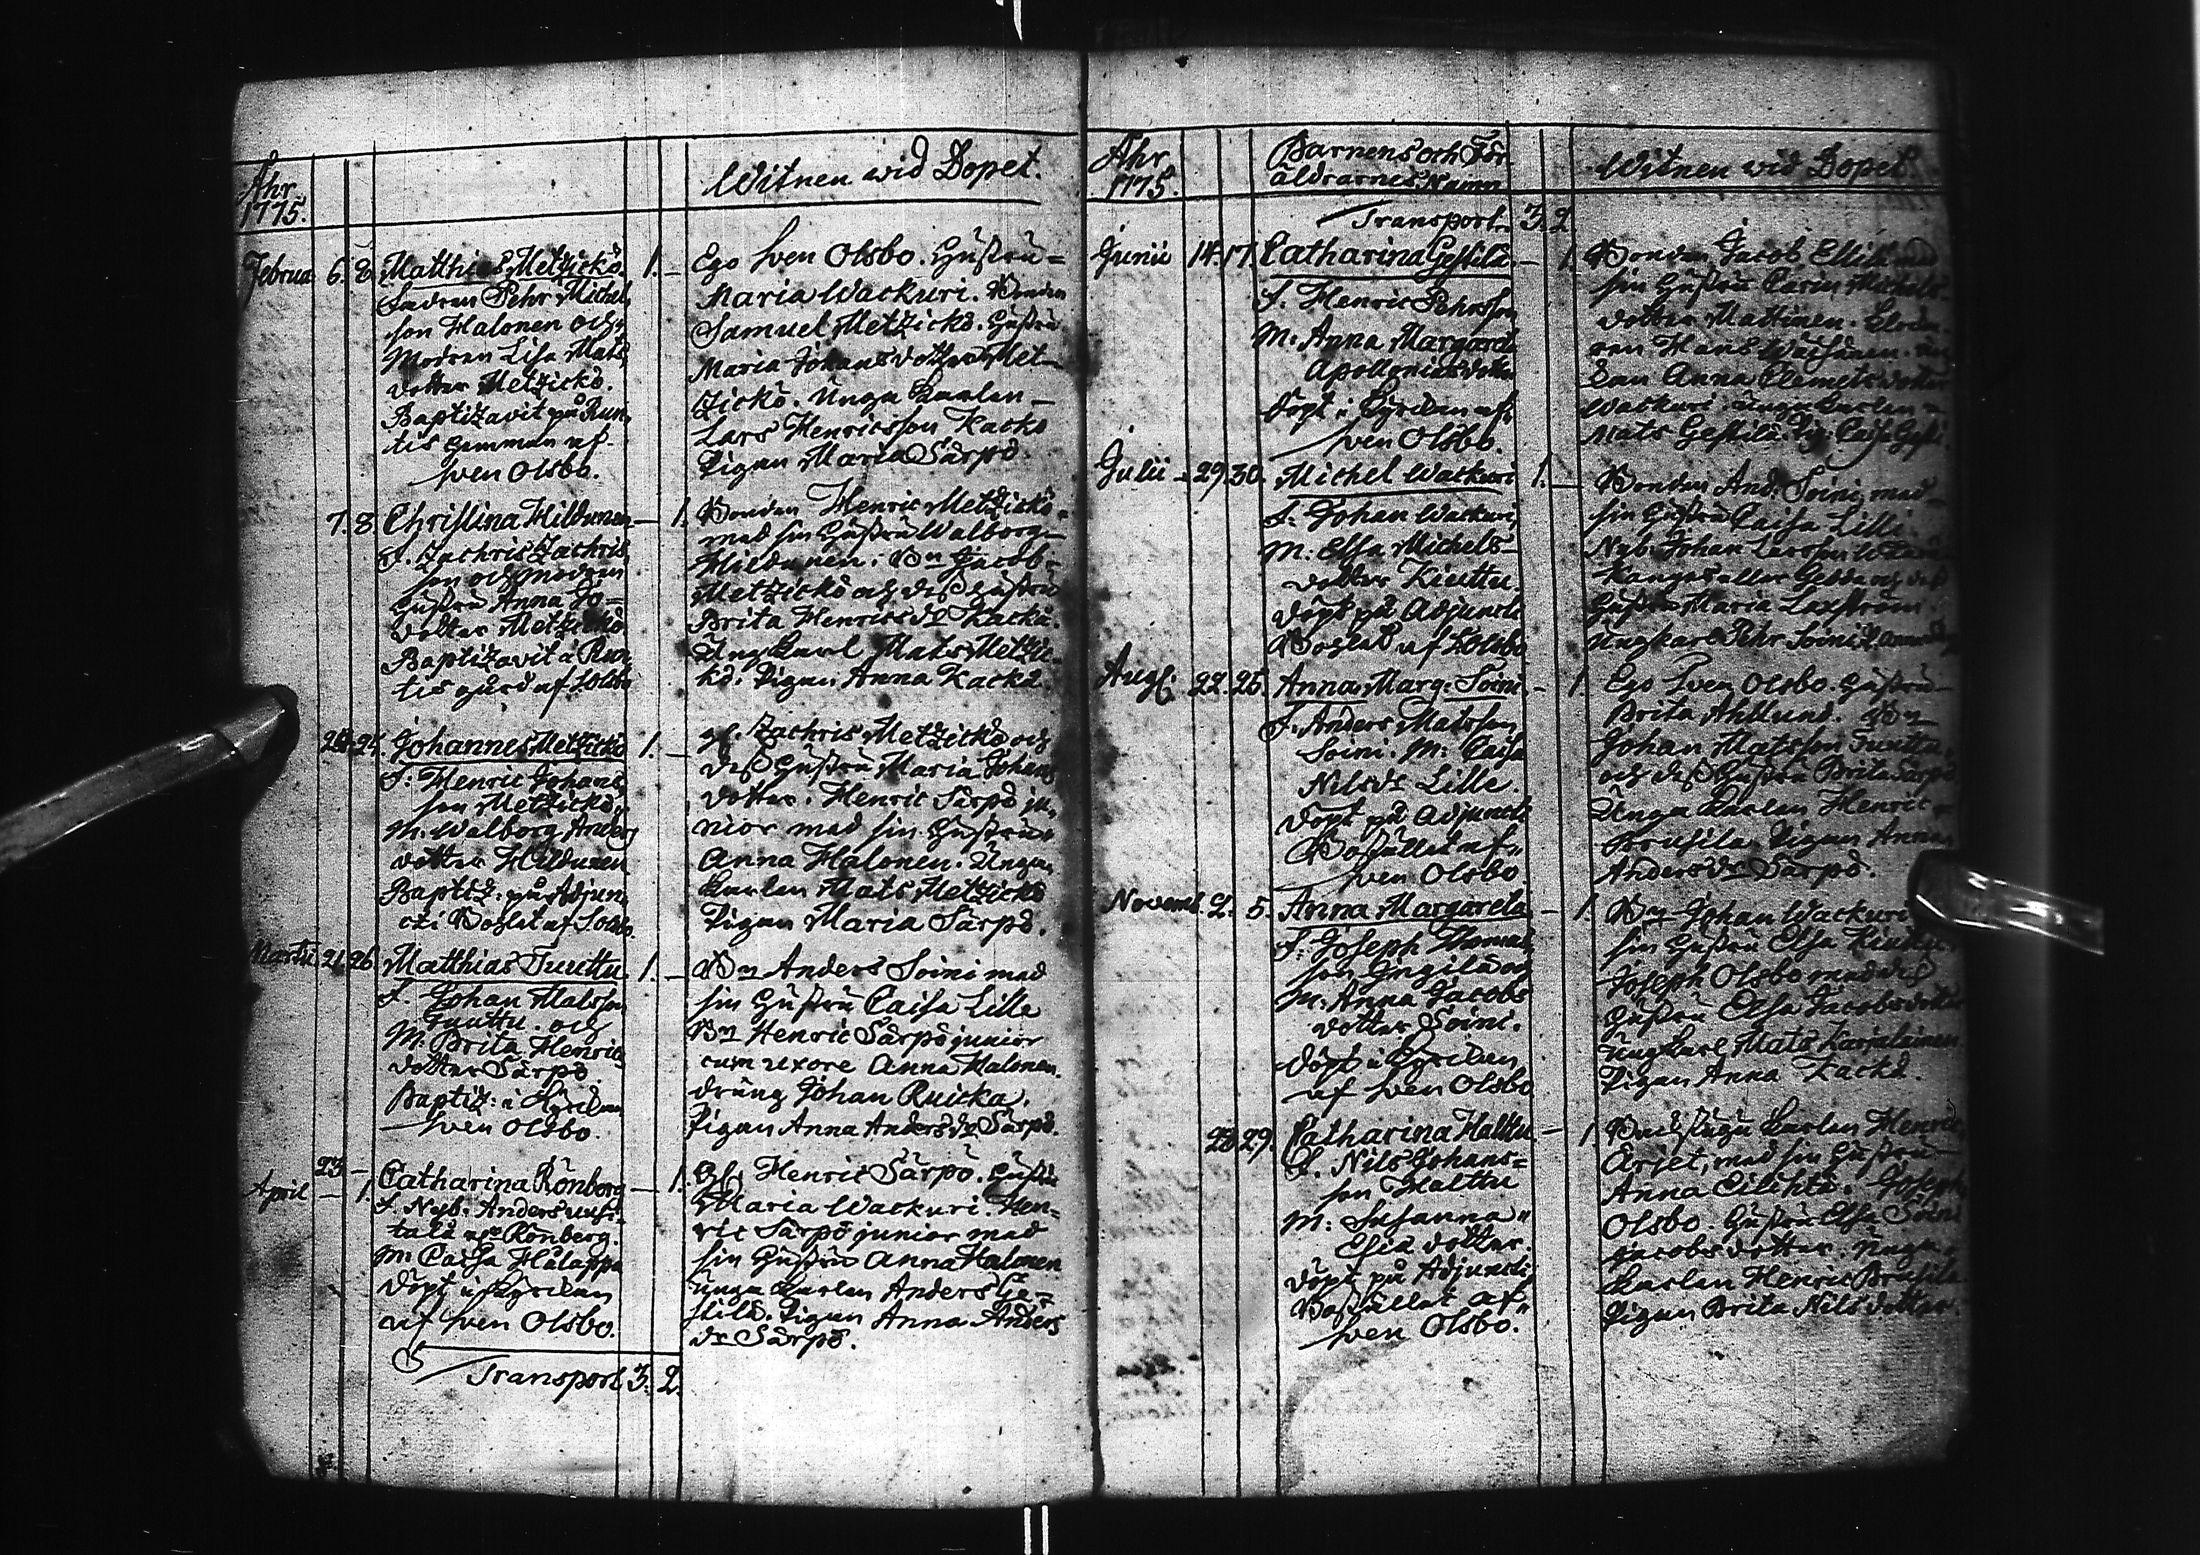 Ahr
1775.
Witnen wid Dopet.
Februa 6. 8. Matthias Metzickö 1. –
Fadren Pehr Michel
son Halonen och
Modren Lisa Mats
dotter Metzickö.
Baptizavit på Run
tis gemman af
Sven Olsbo.
Ego Sven Olsbo. Hustru
Maria Wackuri. Bonden
Samuel Metzickö. Hustru
Maria Johansdotter Met-
zickö. Unga Karlen
Lars Henricsson Kackö
Pigan Maria Särpö
7. 8. Christina Hildunen – 1.
F. Zachris Zachris
son och modren
Hustru Anna Jo-
dotter Metzickö
Baptizavit å Run
tis gård af S. Olsbo
Bonden Henric Metzickö
med sin Hustru Walborg
Hildunen. Bn Jacob
Metzickö och dess Hustru
Brita Henricsdr Kackö.
Ung Karl Mats Metzic-
kö. Pigan Anna Kackö.
24. Johannes Metzickö 1. –
F. Henric Johans
son Metzickö.
M. Walborg Anders
dotter Hildunen
Baptiz: på Adjun
cti Bohlet af S. Olsbo
gl. Zachris Metzickö och
dess Hustru Maria Johans
dotter. Henric Särpö ju
nior med sin Hustru
Anna Halonen. Unga
Karlen Mats Metzickö
Pigan Maria Särpö.
Martii 21. 26. Matthias Tuuttu 1. –
F. Johan Matsson
Tuuttu. och
M. Brita Henrics
dotter Särpö
Baptiz: i Kyrckan
Sven Olsbo.
Bn Anders Soini med
sin Hustru Caisa Lille
Bn Henric Särpö junior
cum uxore Anna Halonen.
dräng Johan Ruicka.
Pigan Anna Andersdr Särpö.
23 –
April – 1. Catharina Rönberg – 1.
F. Nyb. Anders
Rönberg.
M. Caisa Hälappä
döpt i Kyrckan
af Sven Olsbo.
Gl. Henric Särpö. Hustru
Maria Wackuri. Hen-
ric Särpö junior med
sin Hustru Anna Halonen
Unga Karlen Anders Ge-
stilä. Pigan Anna Anders
dr Särpö.
Transport 3. 2.
Ahr
1775.
Barnens och För
äldrarnes Namn
Witnen wid Dopet.
Transport 3. 2.
Junii 14. 17. Catharina Gestilä – 1.
F. Henric Pehrsson
M. Anna Margaret
Apolloniusdotter
döpt i Kyrckan af
Sven Olsbo.
Bonden Jacob med
sin Hustru Carin Michels
dotter Mattinen.
Hans
Anna Clemetsdotter
Wackuri. Unga Karlen
Mats Gestilä. Pig. Caisa Gesti
Julii 29. 30. Michel Wackuri 1. –
F. Johan Wackuri
M. Elsa Michels-
dotter Kiuttu
döpt på Adjuncti
Bohlet af S. Olsbo
Bonden And. Soini med
sin Hustru Caisa Lille
Nyb. Johan Larsson
Kangas eller Gedda och dess
Hustru Maria Laxström.
Ungkarl Pehr Soini
Aug. 22. 25. Anna Marg. Soini – 1
F. Anders Matsson
Soini. M: Caisa
Nilsdr Lille.
döpt på Adjuncti
Bostället af
Sven Olsbo
Ego Sven Olsbo. Hustru
Brita Ahllund. Bn
Johan Matsson Tuuttu
och dess Hustru Brita Särpö
Unga Karlen Henric
Brusila. Pigan Anna
Andersdr Särpö.
Novemb. 2. 5. Anna Margareta – 1.
F. Joseph Thomas
son Ingilä och
M. Anna Jacobs
dotter Soini.
döpt i Kyrckan
af Sven Olsbo
Bn Johan Wackuri
sin Hustru Elsa Kiuttu
Joseph Olsbo med dess
Hustru Elsa Jacobsdotter
Ungkarl Mats Karjalainen
Pigan Anna Kackö.
28. 29. Catharina Halttu – 1.
F. Nils Johans-
son Halttu
M: Susanna
Esiä dotter.
döpt på Adjuncti
Bostället af
Sven Olsbo.
Backstugu Karlen Henric
Ärjet, med sin Hustru
Anna Joseph
Olsbo. Hustru Elsa Soini
Jacobsdotter. Unga
Karlen Henric Brusila
Pigan Brita Nilsdotter.